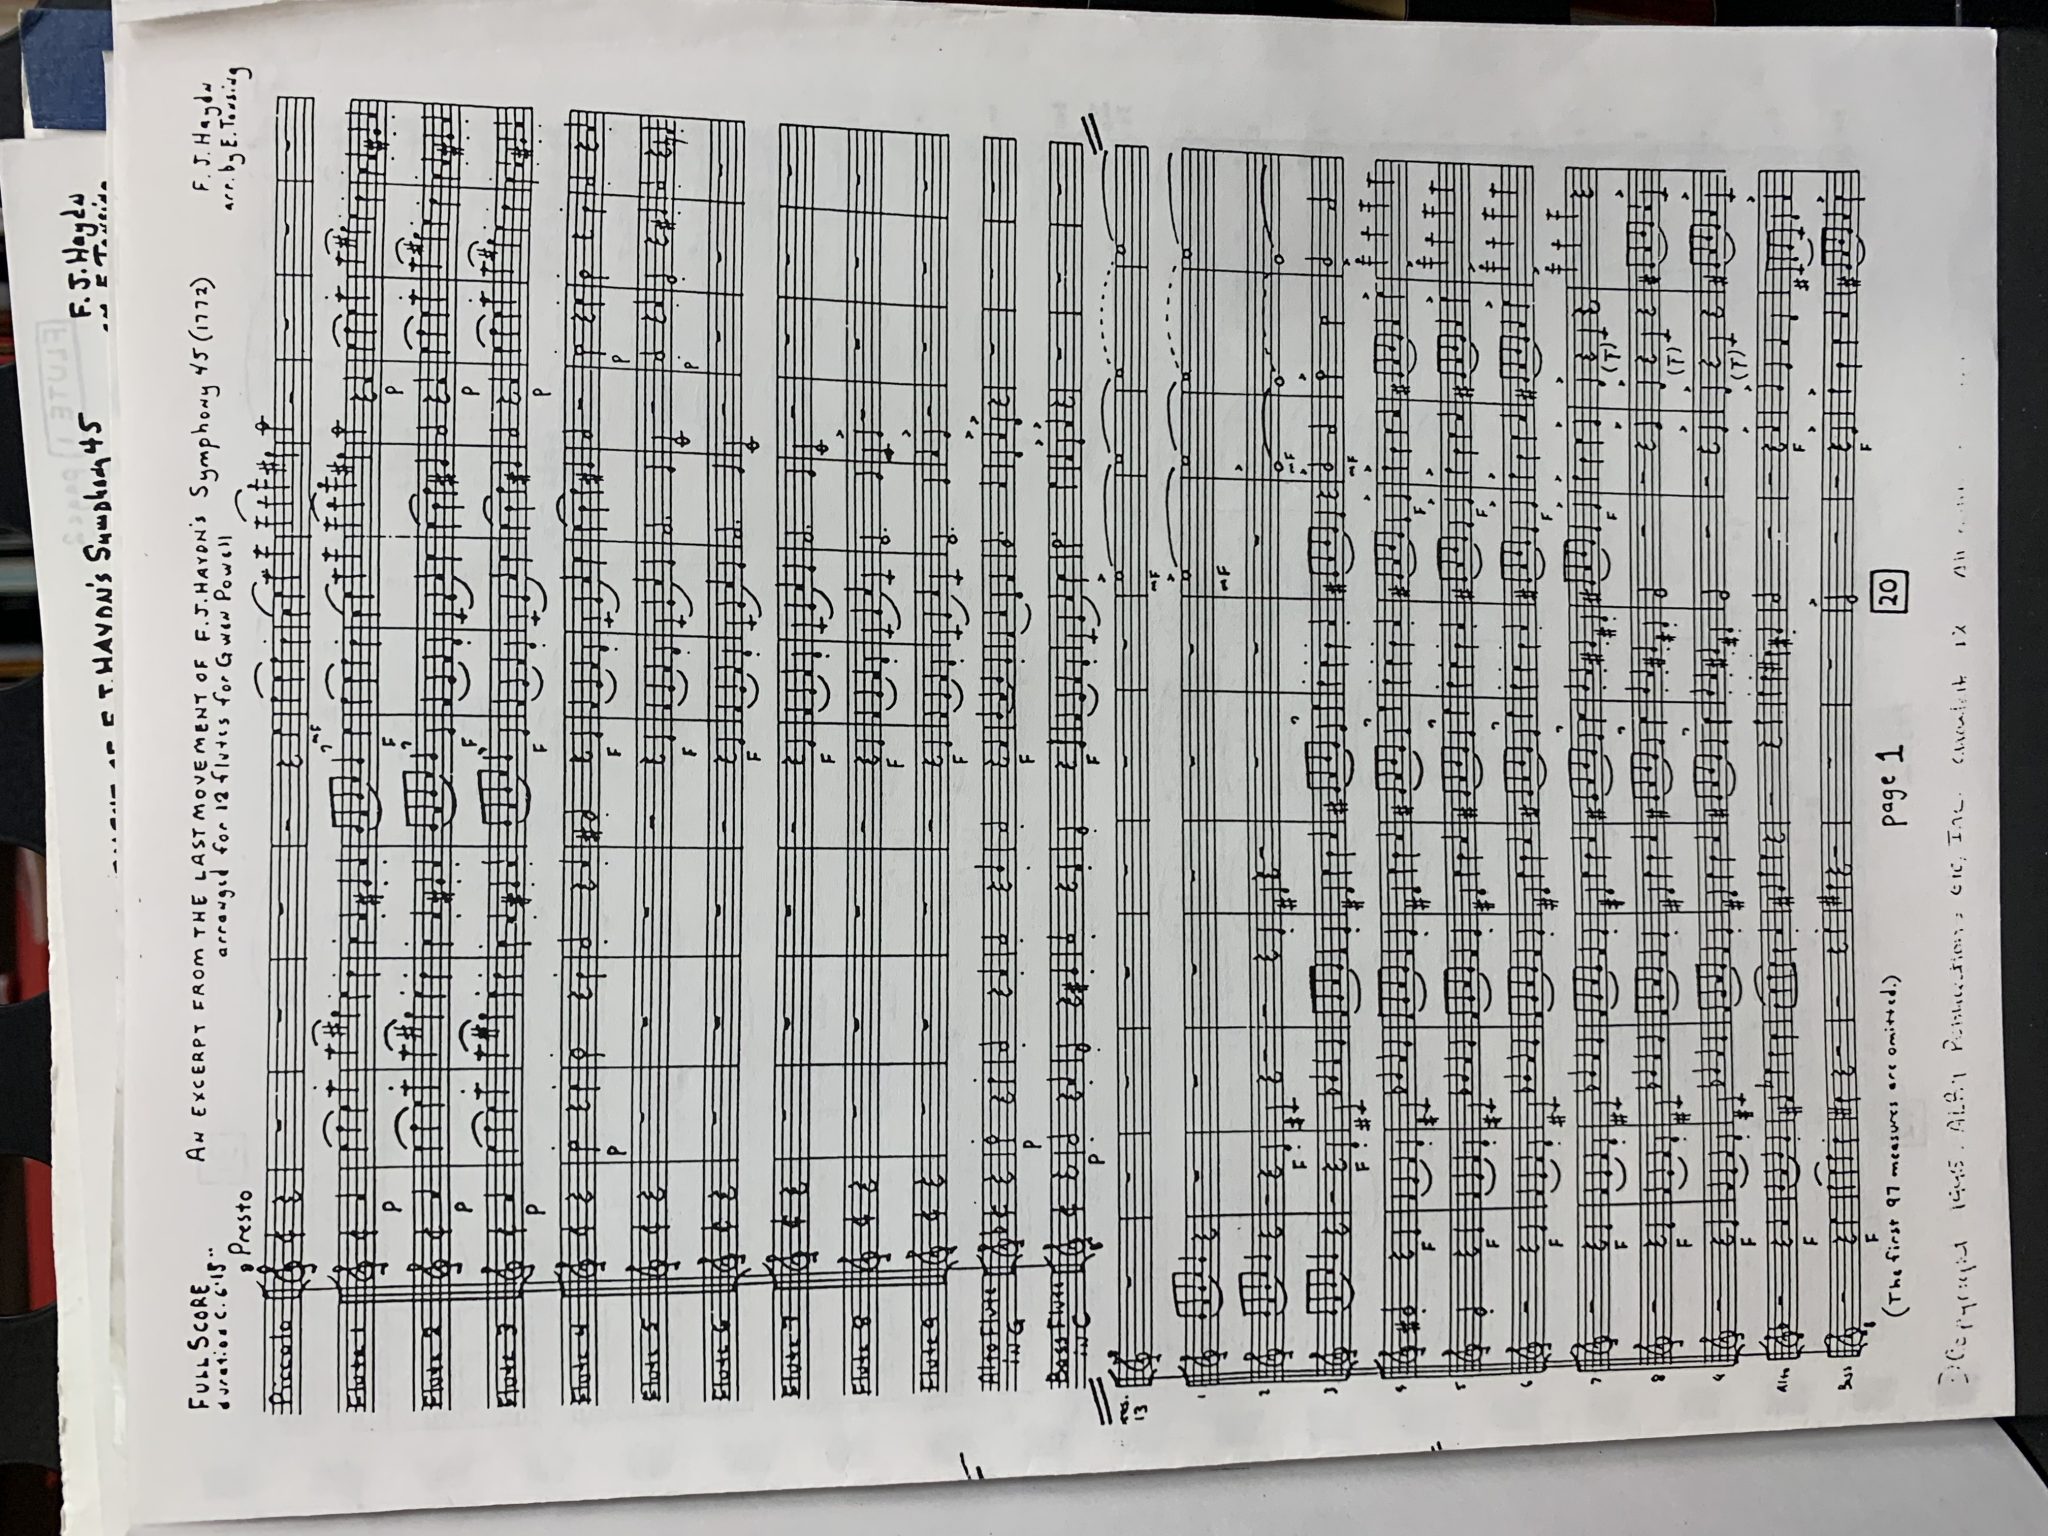 F.J. Haydn
Symphony 45
FLUTE 1
FULL SCORE
duration c. 6'15"
AN EXCERPT FROM THE LAST MOVEMENT OF F.J. HAYDN'S Symphony 45 (1772)
arranged for 12 flutes for Gwen Powell
F. J. Haydn
arr. by E. Tansing
Presto
Piccolo
mF
Flute 1
P F P
Flute 2
P F P
Flute 3
P F P
Flute 4
P F P
Flute 5
F P
Flute 6
F
Flute 7
F
Flute 8
F
Flute 9
F
Alto Flute
in G
P F
Bass Flute
in C
P F
mes.
13
mF
1
mF
2
F mF
3
F mF
4
F F
5
F F
6
F F
7
F F (T)
8
F (T)
9
F (T)
Alto
F F
Bass
F F
20
(The first 97 measures are omitted.)
page 1